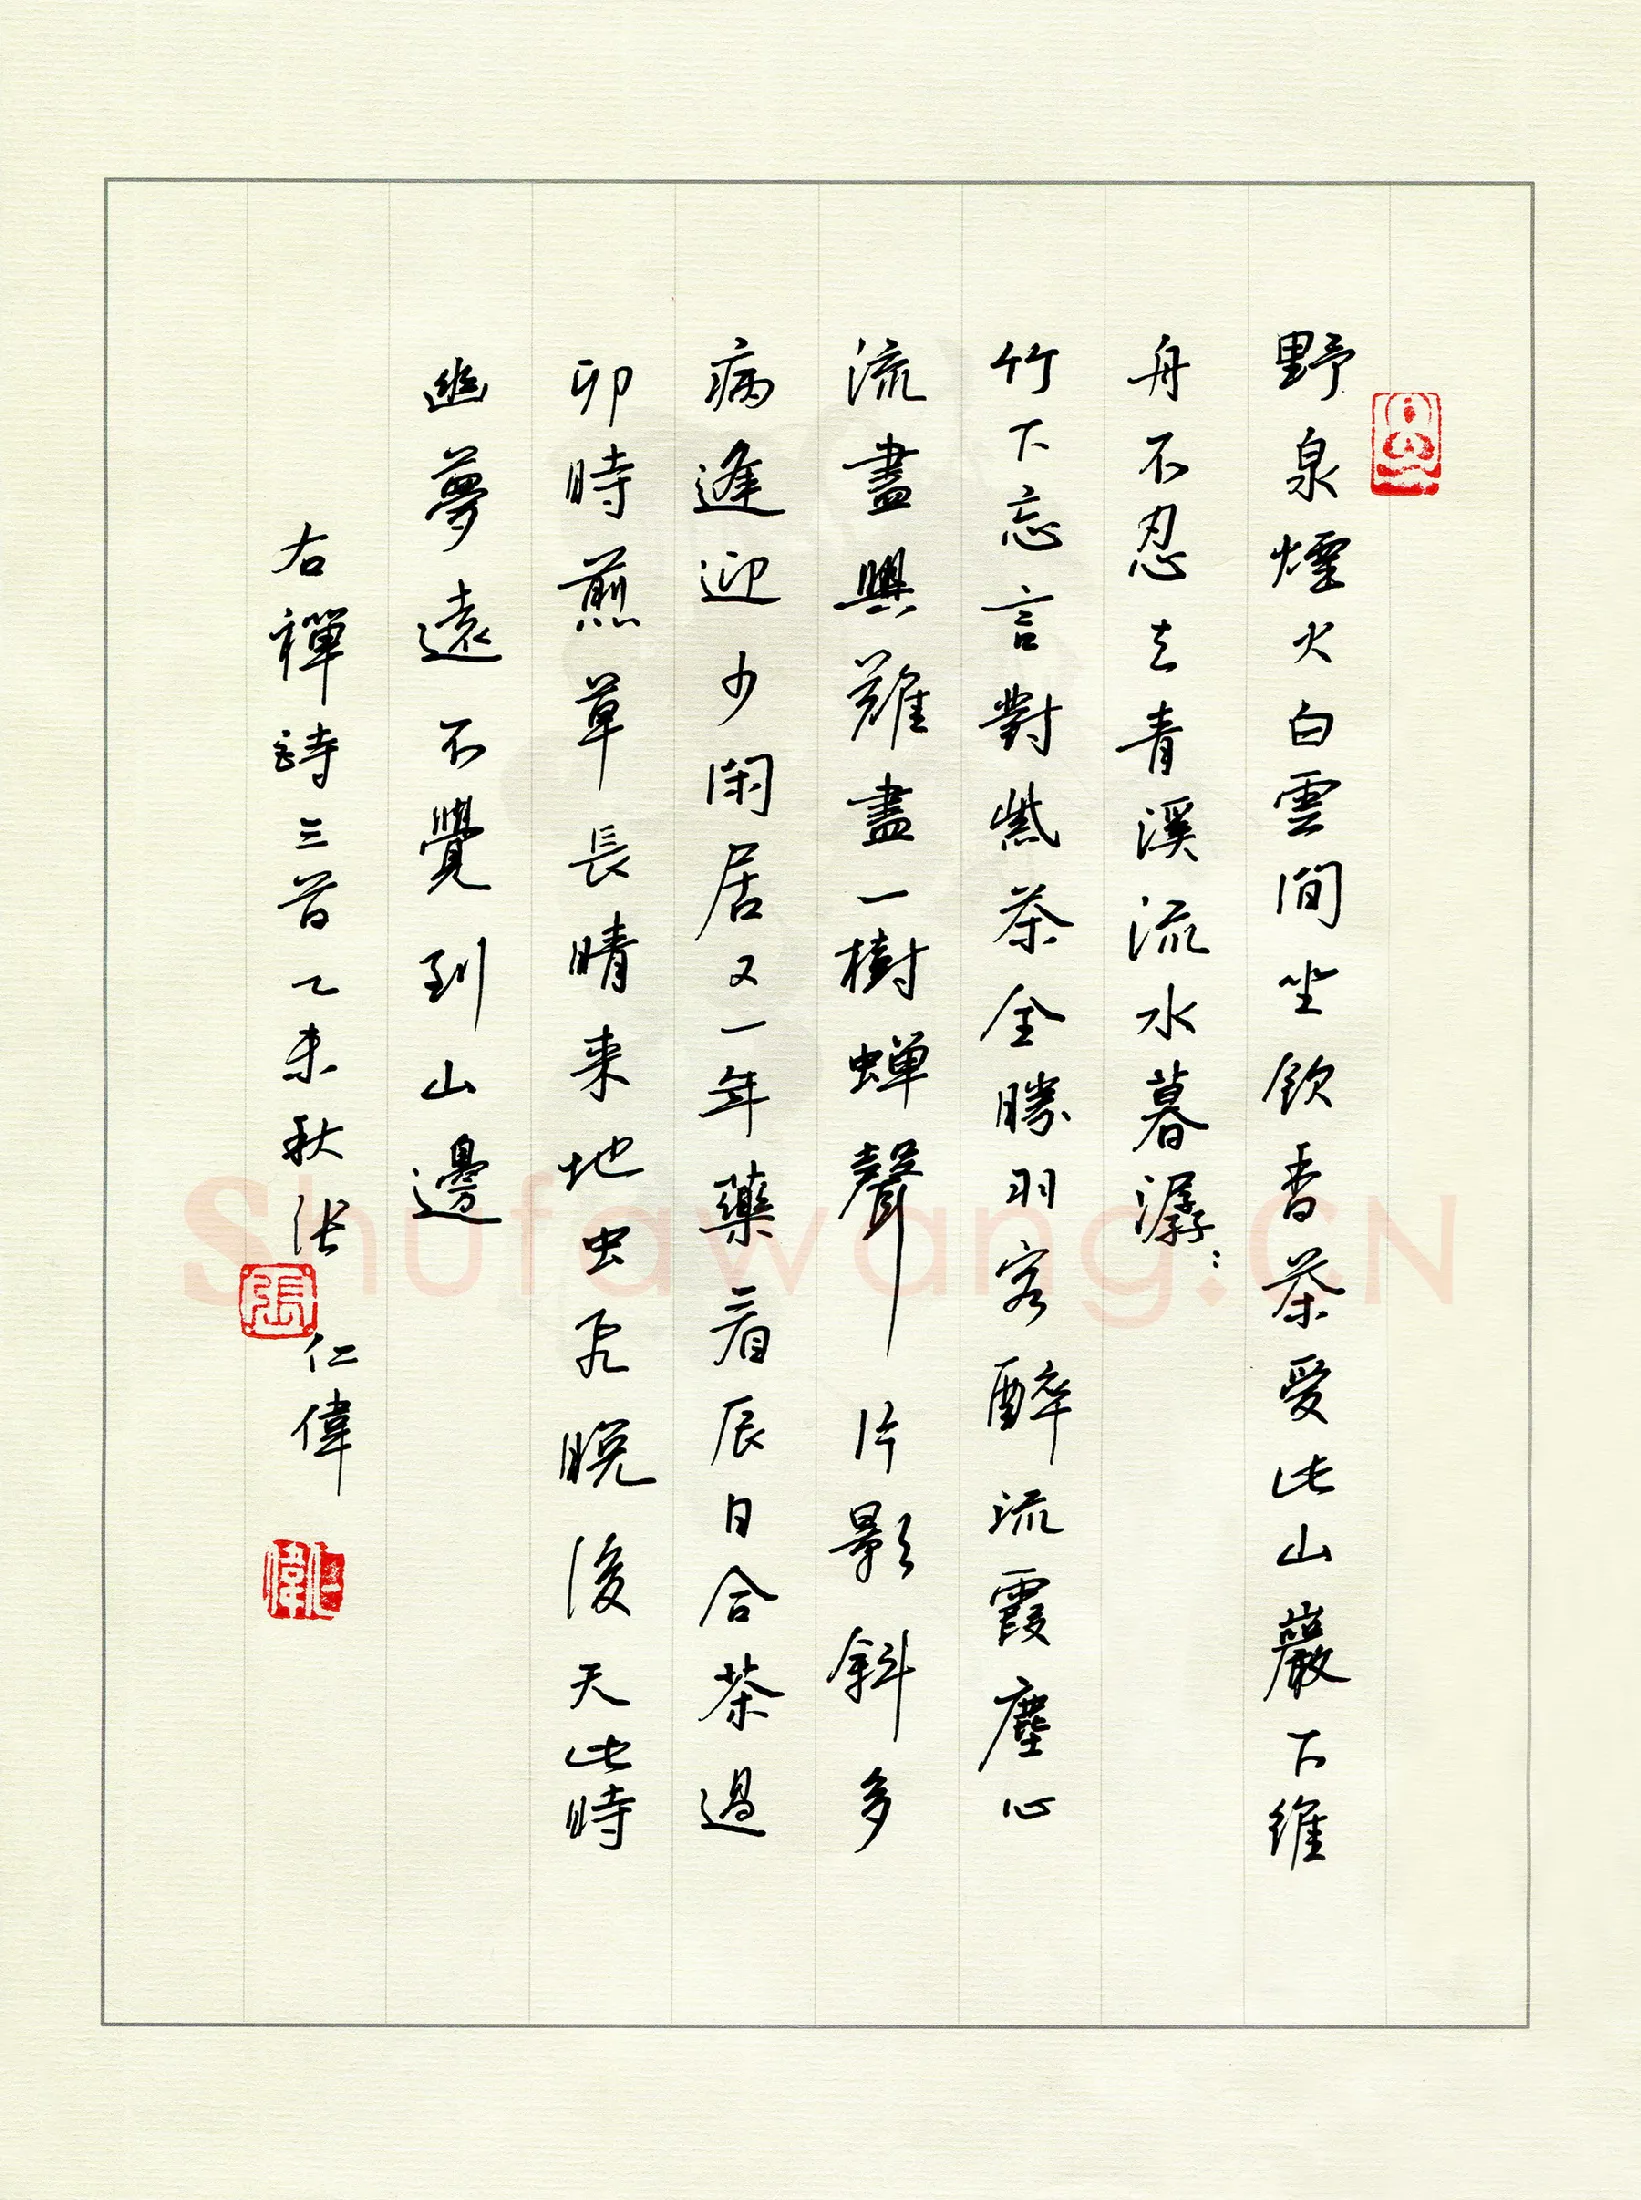 野泉煙火白雲間坐飲香茶愛此山巖下維
舟不忍去青溪流水暮潺:
竹下忘言對紫茶全勝羽客醉流霞塵心
流盡興難盡一樹蟬聲片影斜多
病逢迎少閑居又一年藥看辰日合茶過
卯時煎草長晴来地虫飛晚後天此時
幽夢遠不覺到山邊
右禪詩三首乙未秋張仁偉
張
仁偉
Shufawang.CN